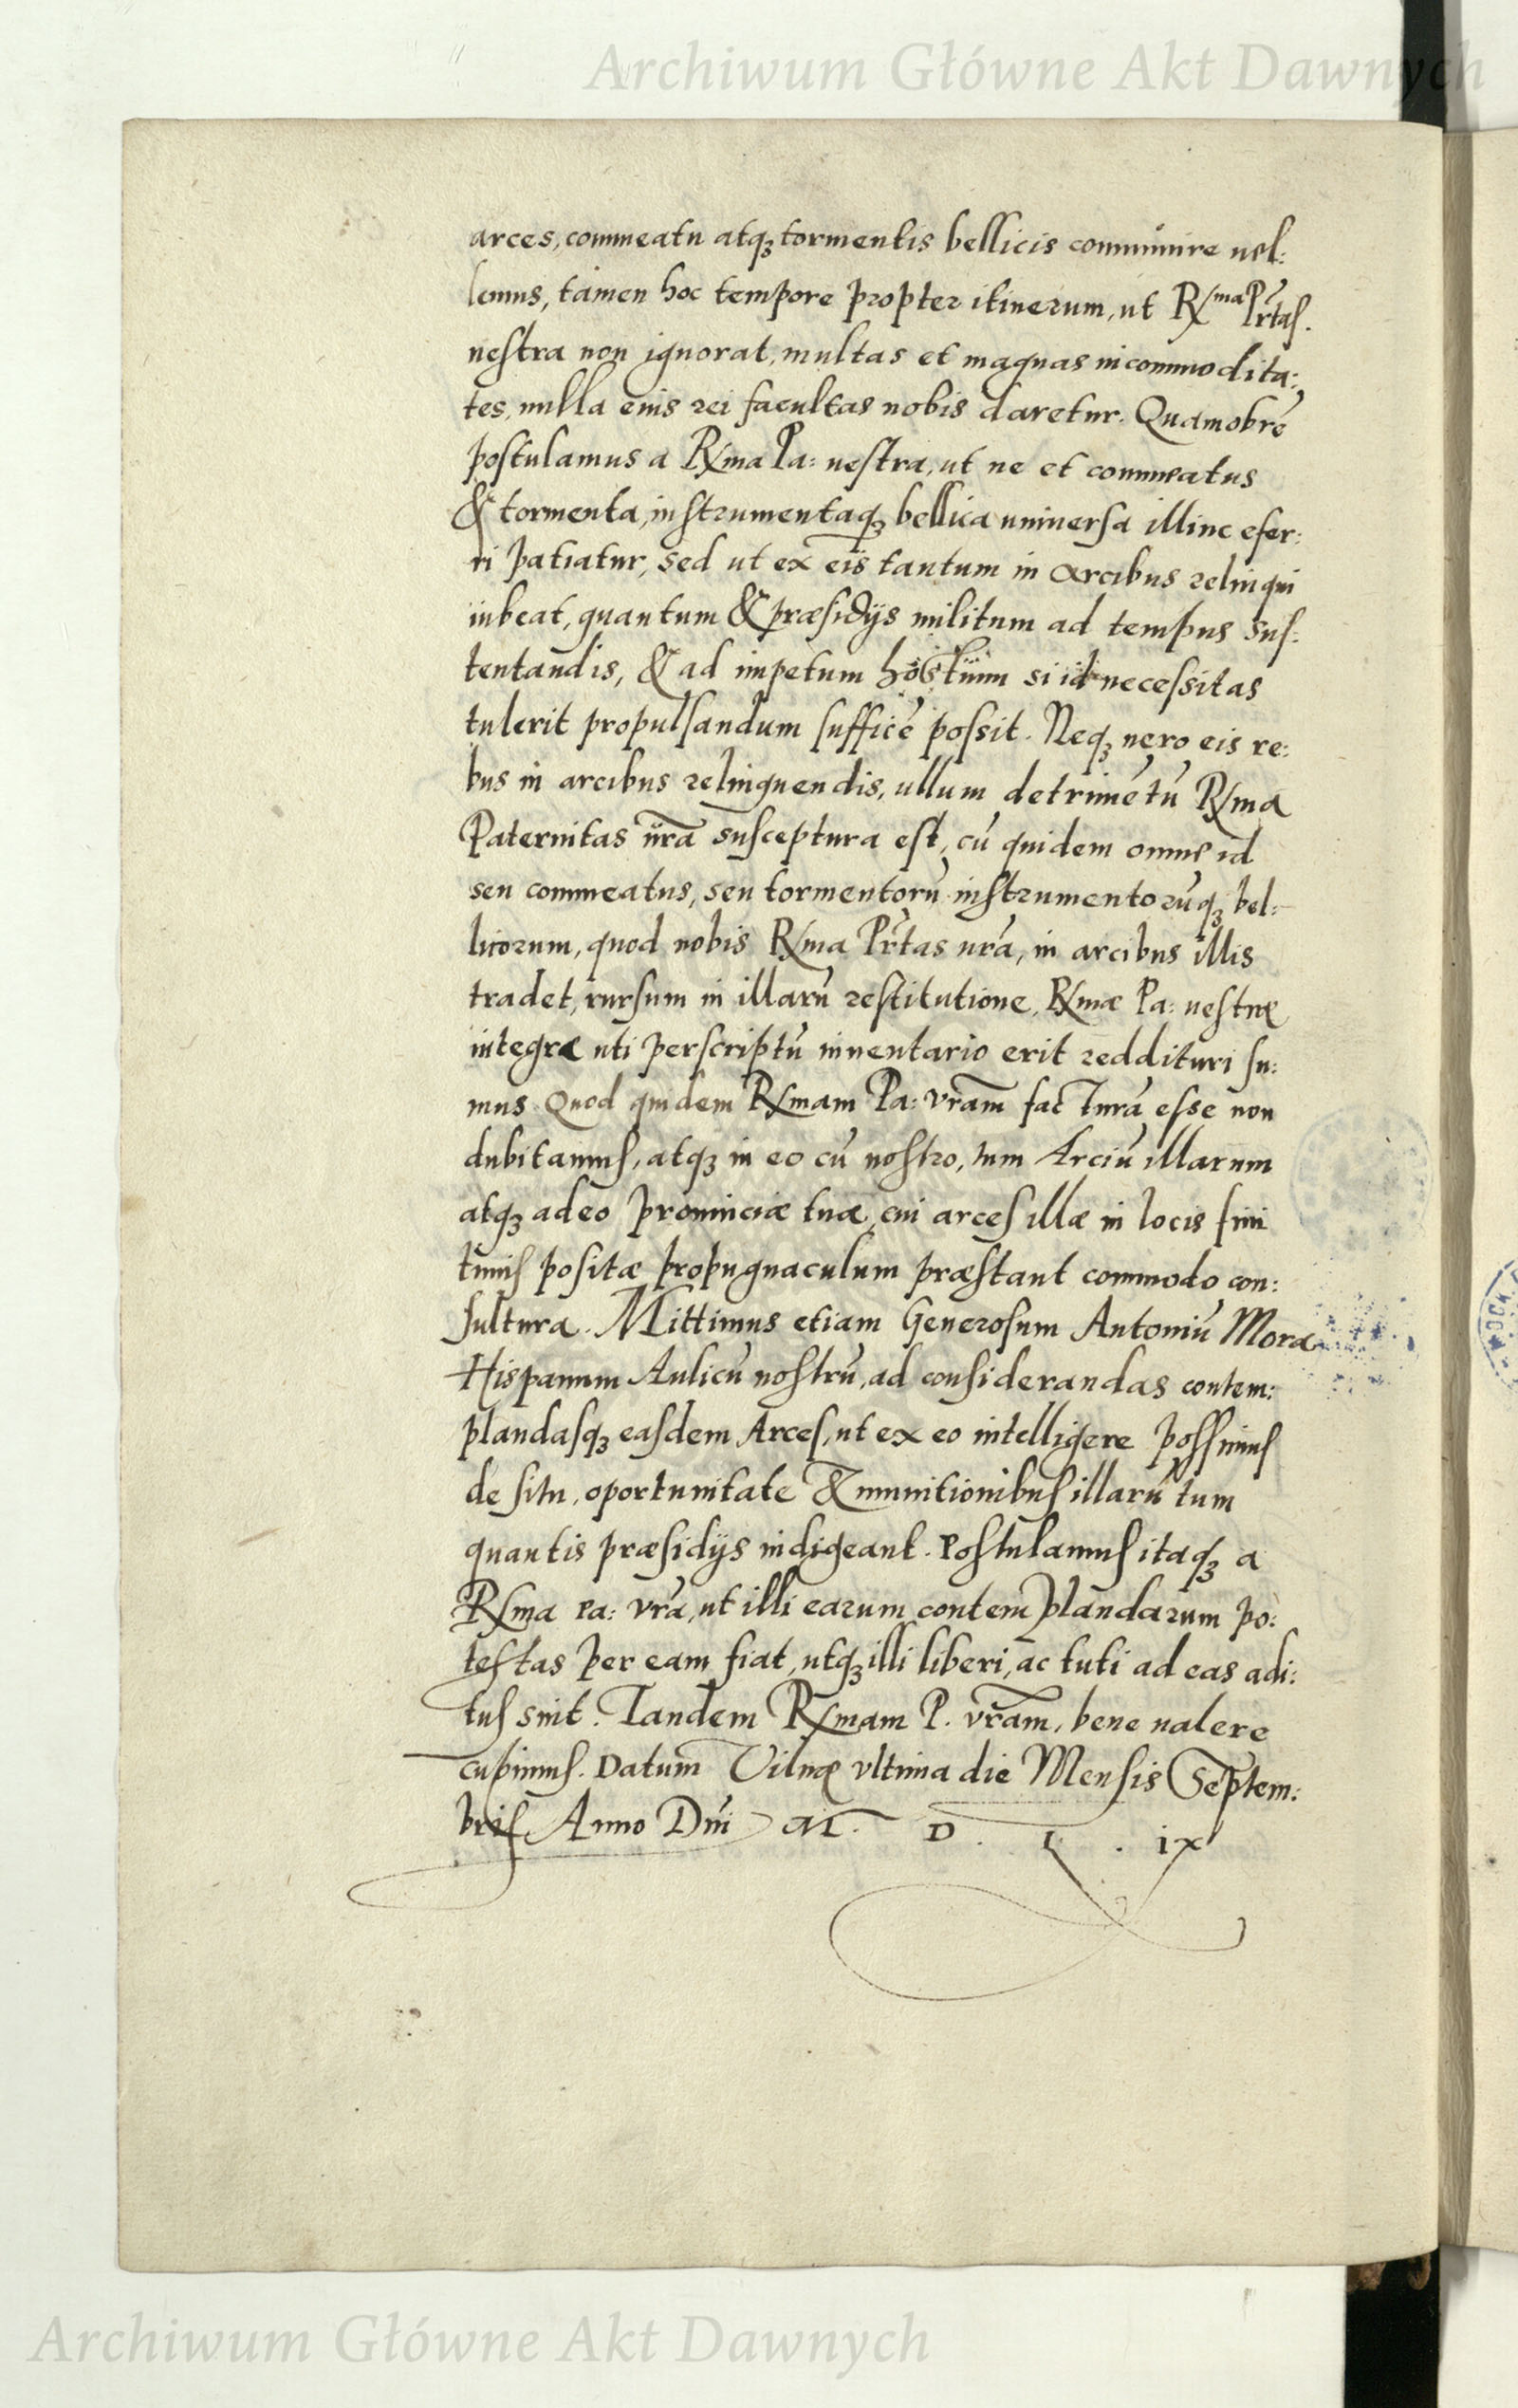 Archiwum Główne Akt Dawnych
arces, commeatu atqꝫ tormentis bellicis communire uel:
lemus, tamen hoc tempore propter itinerum, ut Rma Prtas.
uestra non ignorat, multas et magnas incommodita:
tes, nulla eius rei facultas nobis daretur. Quamobrē
postulamus a Rma Pa: uestra, ut ne et commeatus
& tormenta, instrumentaqꝫ bellica uniuersa illinc efer:
ri patiatur, sed ut ex eis tantum in arcibus relinqui
iubeat, quantum & præsidijs militum ad tempus sus:
tentandis, & ad impetum hostium si id necessitas
tulerit propulsandum sufficē possit. Neqꝫ uero eis re:
bus in arcibus relinquendis, ullum detrimētū Rma
Paternitas nr̄a susceptura est, cū quidem omne id
seu commeatus, seu tormentorū instrumentorūqꝫ bel:
licorum, quod nobis Rma Prtas ur̄a, in arcibus illis
tradet, rursum in illarū restitutione, Rmæ Pa: uestræ
integra uti perscriptū inuentario erit reddituri su:
mus Quod quidem Rmam Pa: vr̄am facturā esse non
dubitamus, atqꝫ in eo cū nostro, tum Arciū illarum
atqꝫ adeo prouinciæ tuæ, cui arces illæ in locis fini
timis positæ propugnaculum præstant commodo con:
sultura. Mittimus etiam Generosum Antoniū Mora
Hispanum Aulicū nostrū, ad considerandas contem:
plandasqꝫ easdem Arces, ut ex eo intelligere possimus
de situ, oportunitate & munitionibus illarū tum
quantis præsidijs indigeant. Postulamus itaqꝫ a
Rma Pa: vr̄a, ut illi earum contemplandarum po:
testas per eam fiat, utqꝫ illi liberi, ac tuti ad eas adi:
tus sint. Tandem Rmam P. vr̄am, bene ualere
cupimus. Datum Vilnæ vltima die Mensis Septem:
bris Anno Dn̄i M. D. L. ix
Archiwum Główne Akt Dawnych